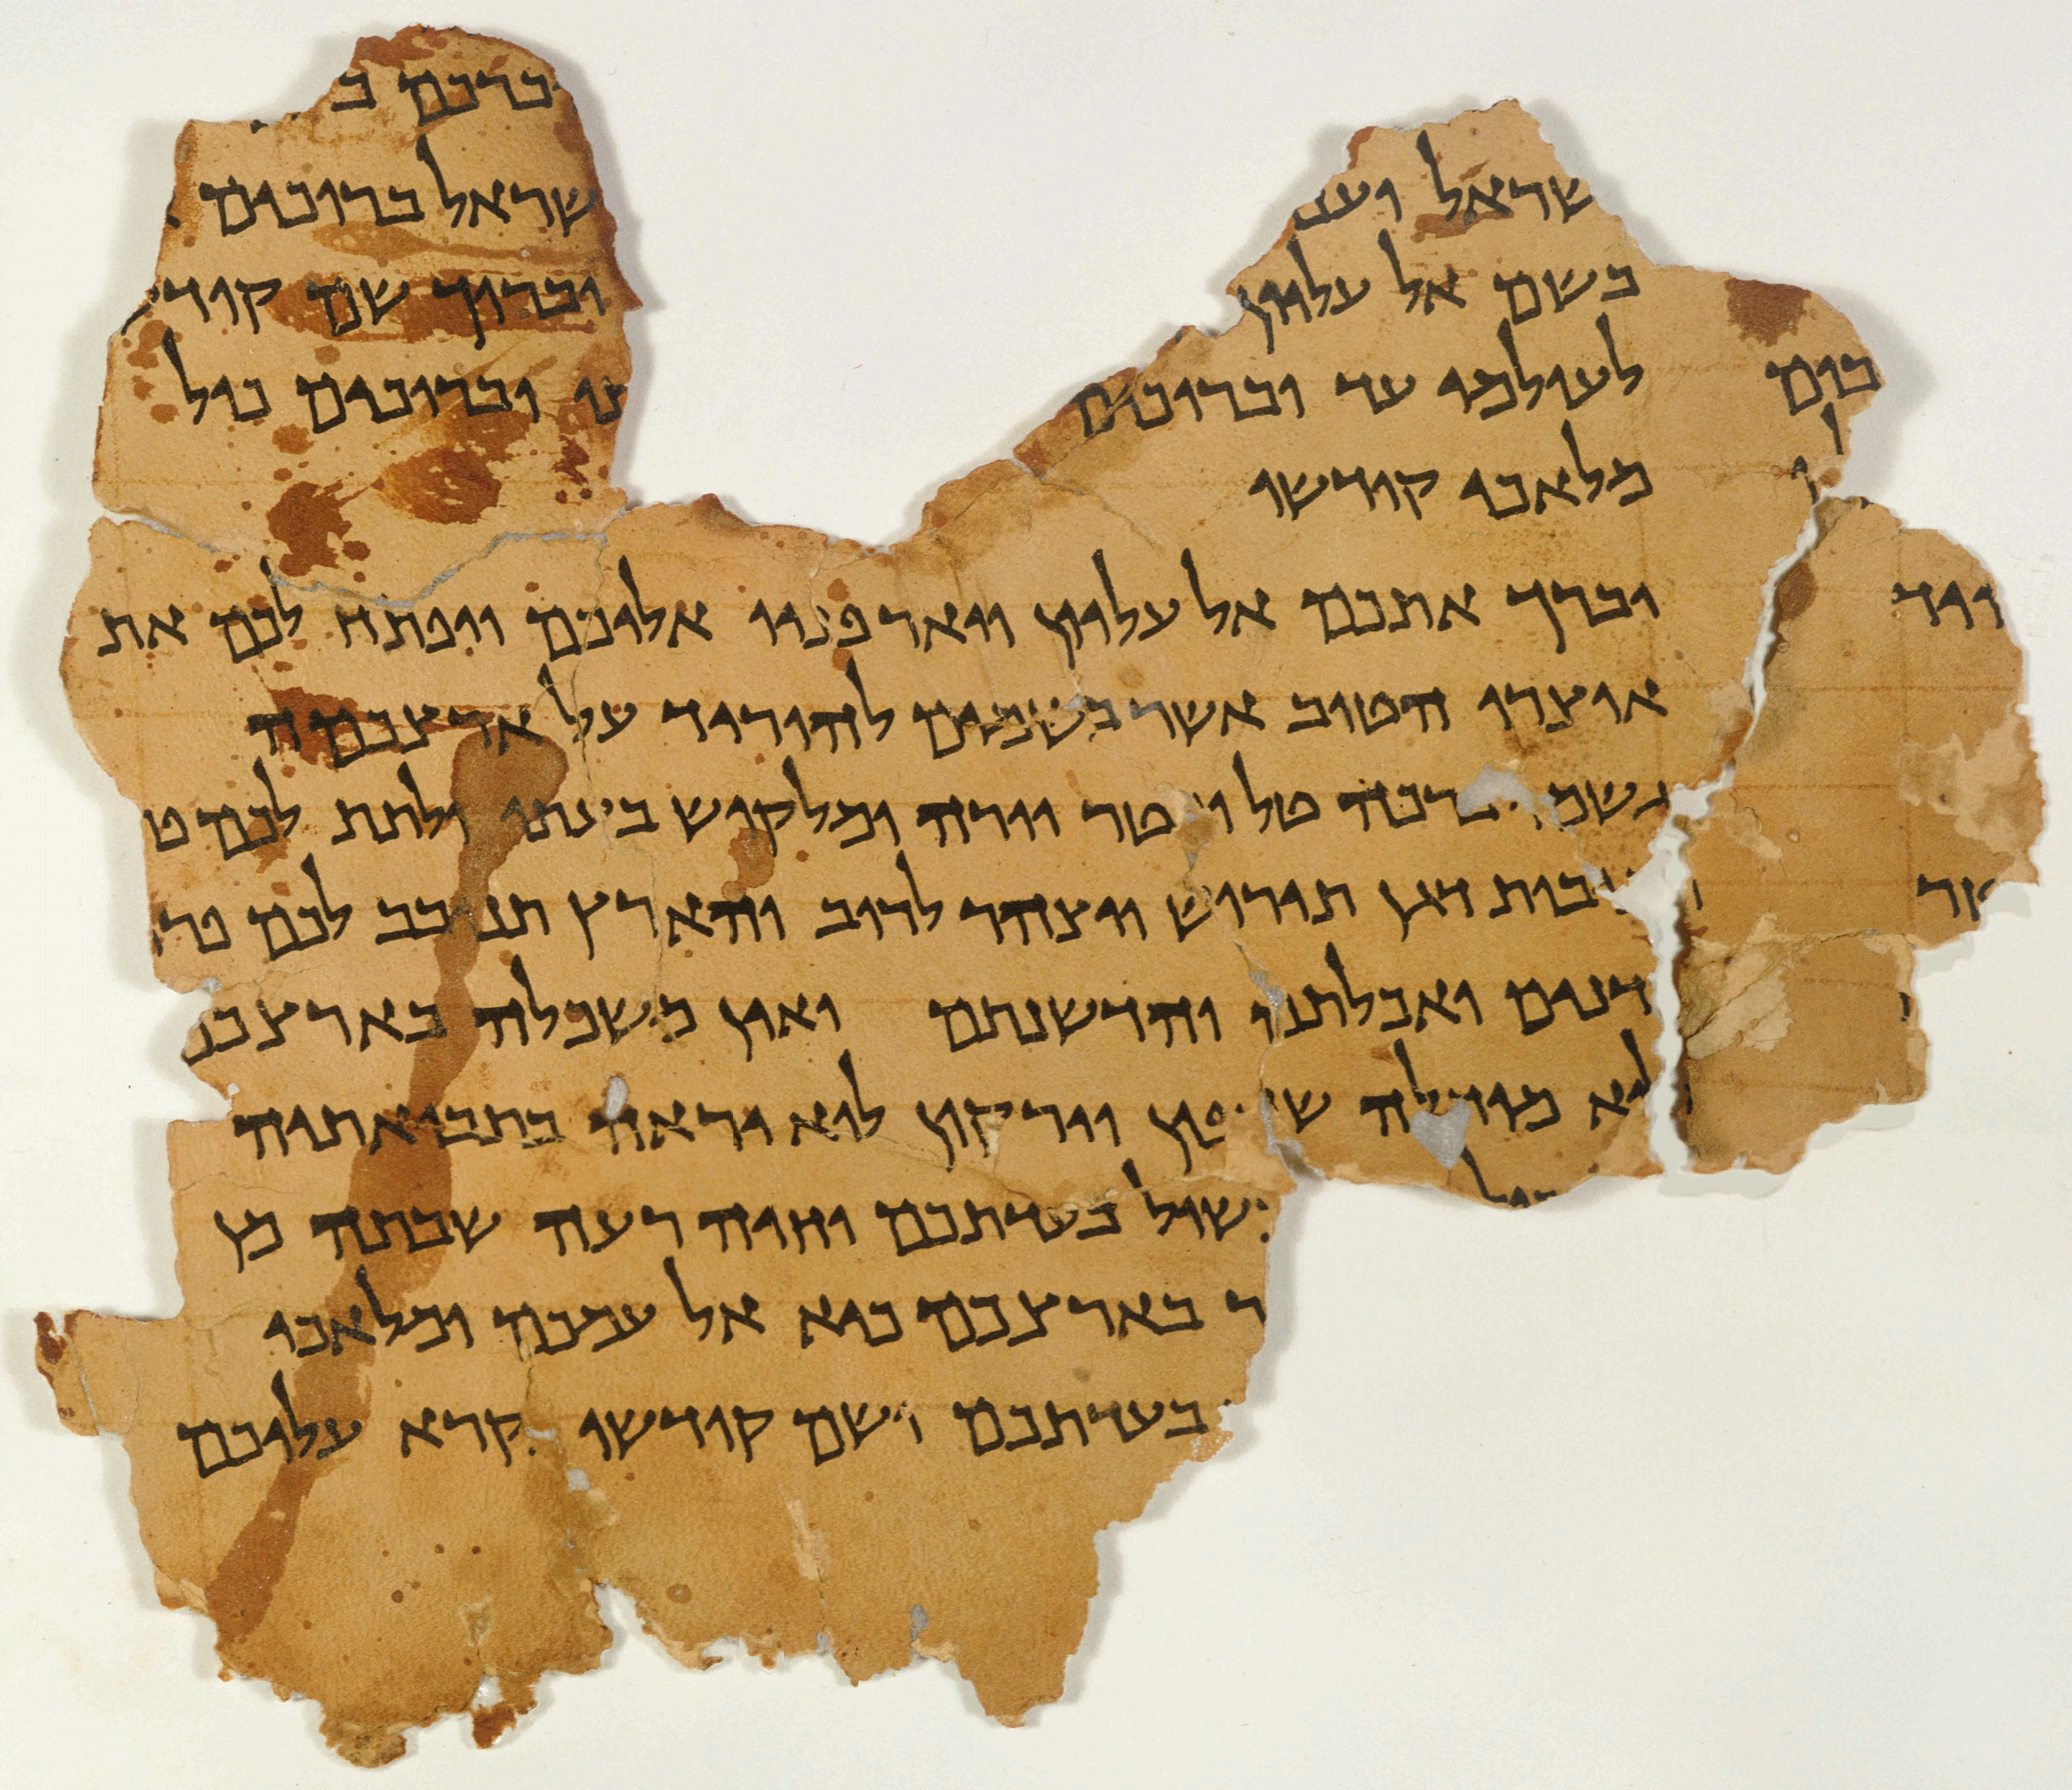 כים
ן
י
ויה
אר
ברכם ב
שראל וענ שראל ברוכים
בשם אל עליון וברוך שם קוד
לעולמי עד וברוכים יו וברוכים כול
מלאכי קודשו
יברך אתכם אל עליון ויאר פניו אליכם ויפתח לכם את
אוצרו הטוב אשר בשמים להוריד על ארצכמה
גשמ ברכה טל ומטר יורה ומלקוש בעתו ולתת לכם פ
בות דגן תירוש ויצהר לרוב והארץ תנובב לכם פרי
דנים ואכלתם והדשנתם ואין משכלה בארצכם
לוא מוחלה שדפון וירקון לוא יראה בתבואתיה
כול שול בעדתכם וחיה רעה שבתה מן
ר בארצכם כיא אל עמכם ומלאכי
בעדתכם ושם קודשו נקרא עליכם